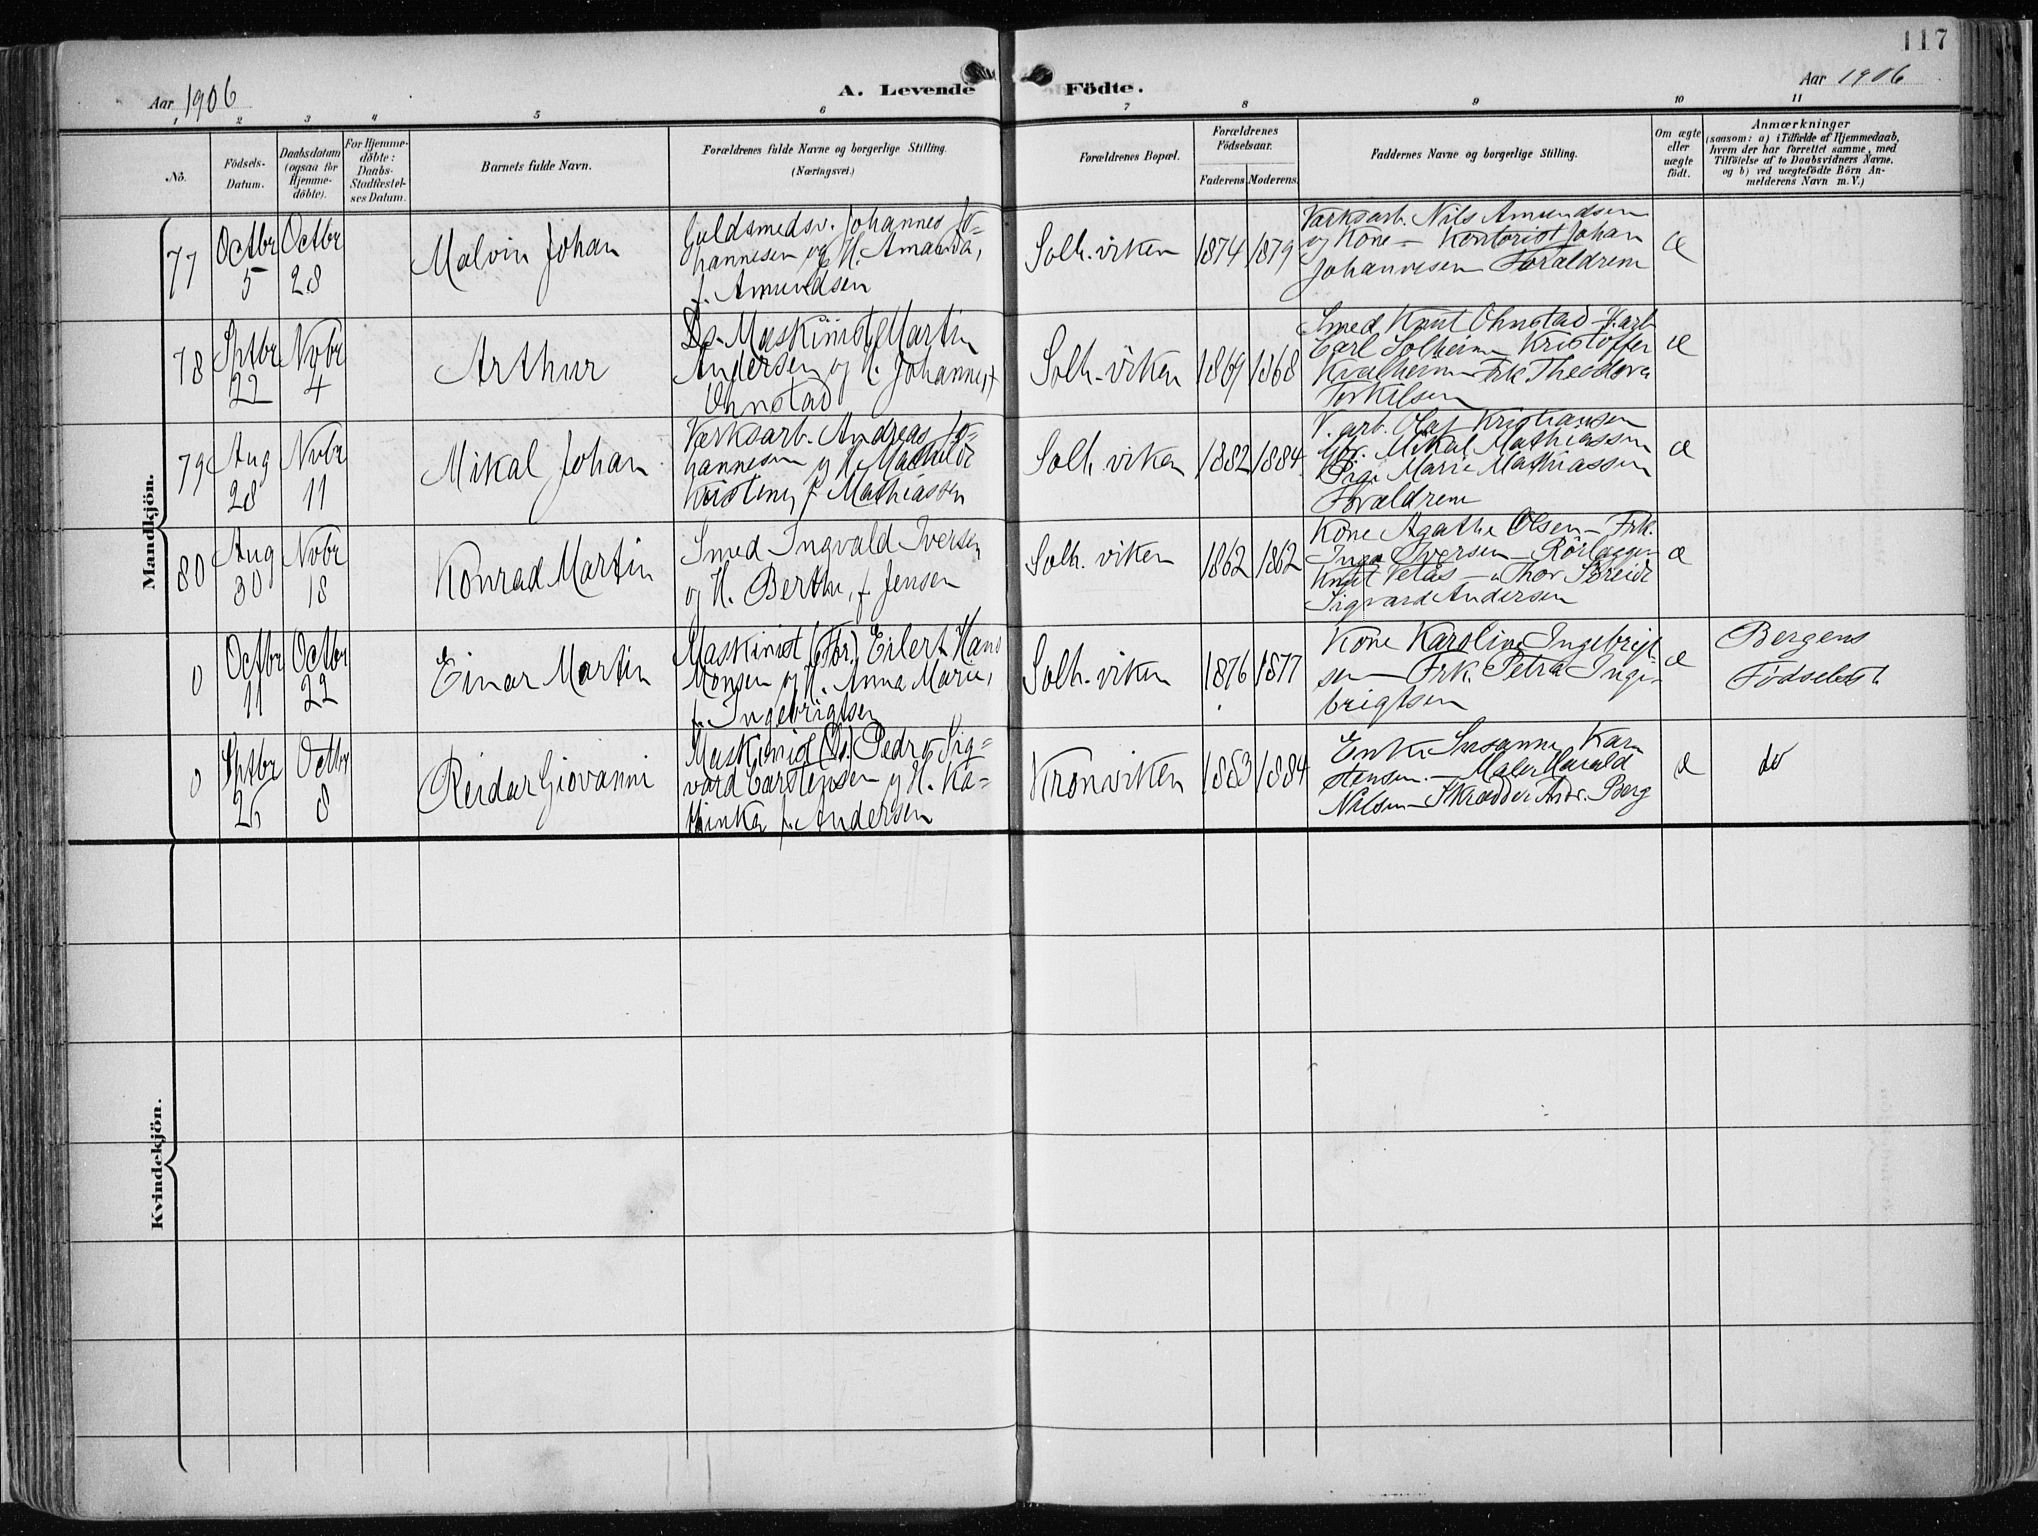 117
Aar 1906
A. Levende Födte.
Aar 1906
1 2 3 4 5 6 7 8 9 10 11
No.
Födsels-
Datum.
Daabsdatum
(ogsaa för
Hjemme-
döbte).
For Hjemme-
döbte:
Daabs-
Stadfæstel-
ses Datum.
Barnets fulde Navn.
Forældrenes fulde Navne og borgerlige Stilling.
(Næringsvei.)
Forældrenes Bopæl.
Forældrenes
Födselsaar.
Faderens. Moderens.
Faddernes Navne og borgerlige Stilling.
Om ægte
eller
uægte
födt.
Anmærkninger
(saasom: a) i Tilfælde af Hjemmedaab,
hvem der har forrettet samme, med
Tilföielse af to Daabsvidners Navne,
og b) ved uægtefödte Börn An-
melderens Navn m. V.)
Mandkjön.
77
Octbr
5
Octbr
28
Malvin Johan
Guldsmedsv. Johannes Jo=
hannesen og H. Amanda,
f. Amundsen
Solh. viken
1874
1879
Værksarb. Nils Amundsen
og Kone – Kontorist Johan
Johannesen Forældrene
æ
78
Sptbr
22
Nvbr
4
Arthur
Ds. Maskinist Martin
Andersen og H. Johanne, f
Ohnstad
Solh. viken
1869
1868
Smed Knut Ohnstad –
Carl Solheim Kristoffer
Kvalheim – Frk Theodora
Torkilsen
æ
79
Aug
28
Nvbr
11
Mikal Johan
Værksarb. Andreas Jo=
hannesen og H. Mathilde
Kristine, f. Mathiassen
Solh. viken
1882
1884
V. arb. Olaf Kristiansen
Mikal Mathiassen
Pige Marie Mathiassen
Forældrene
æ
80
Aug
30
Nvbr
18
Konrad Martin
Smed Ingvald Iversen
og H. Berthe, f. Jensen
Solh. viken
1862
1862
Kone Agathe Olsen – Frk.
Inga Iversen – Rörlægger
Knut Velås – Thor Breide
Sigvard Andersen
æ
0
Octbr
11
Octbr
22
Einar Martin
Maskinist (Fbr.) Eilert Hans
Monsen og H. Anna Marie,
f. Ingebrigtsen
Solh. viken
1876
1877
Kone Karoline Ingebrigt
sen – Frk. Petra Inge-
brigtsen
æ
Bergens
Födselsst.
0
Sptbr
26
Octbr
8
Reidar Giovanni
Maskinist (Ds.) Pedro Sig=
vard Carstensen og H. Ka=
thinka f. Andersen
Kronviken
1883
1884
Enke Susanne Kar
stensen. – Maler Harald
Nilsen – Skrædder Andr. Berg
æ
do
Kvindekjön.